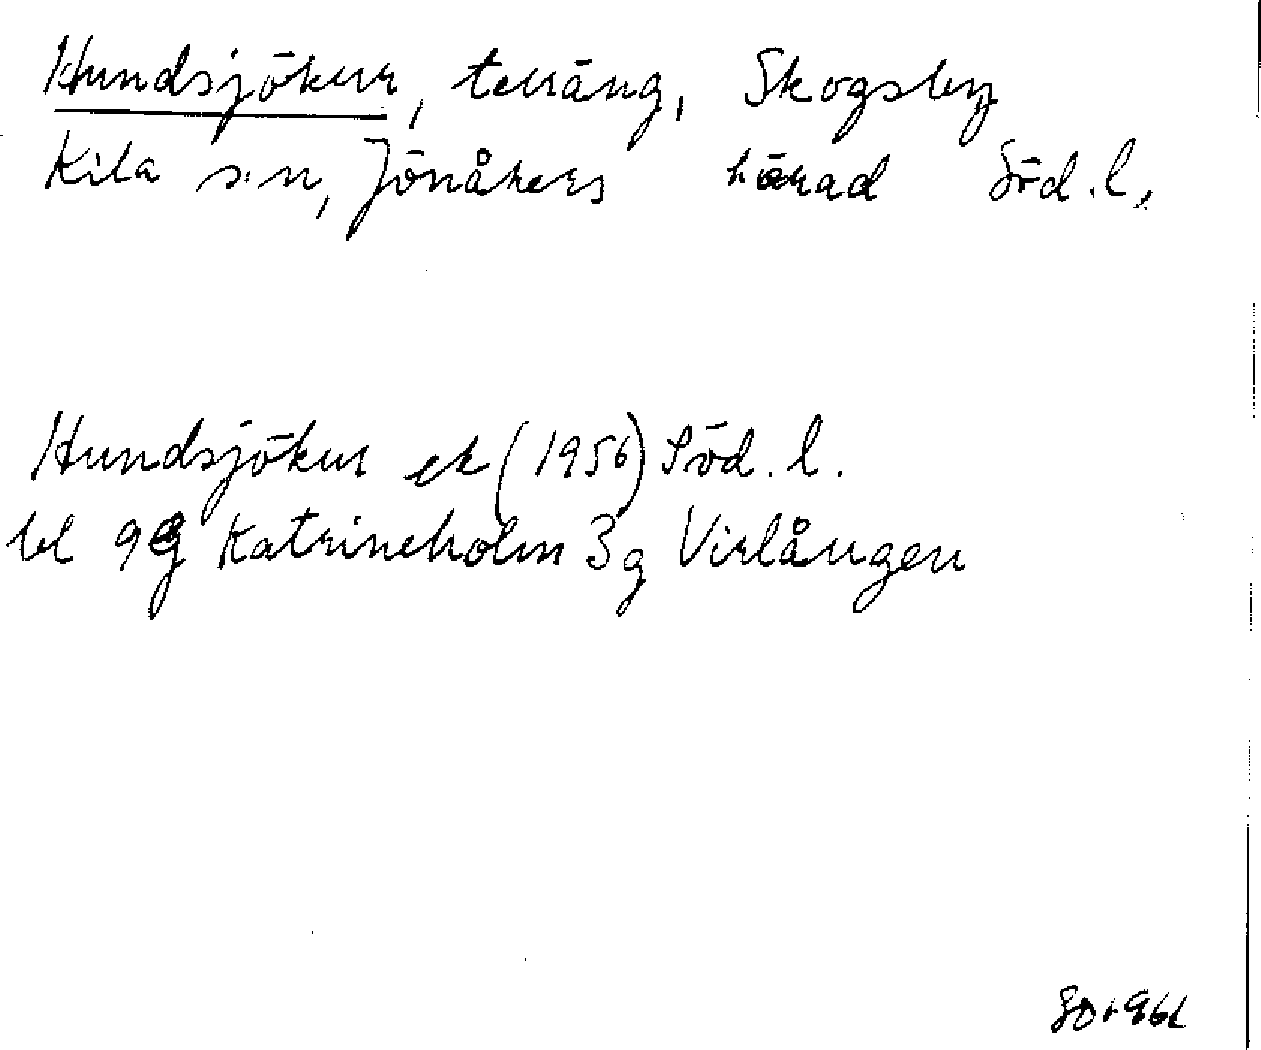 Hundsjökur, terräng, Skogsby
Kila s:n, Jönåkers härad Söd.l,
Hundsjökur ek (1956) Söd.l.
bl 9g Katrineholm 3g Virlången